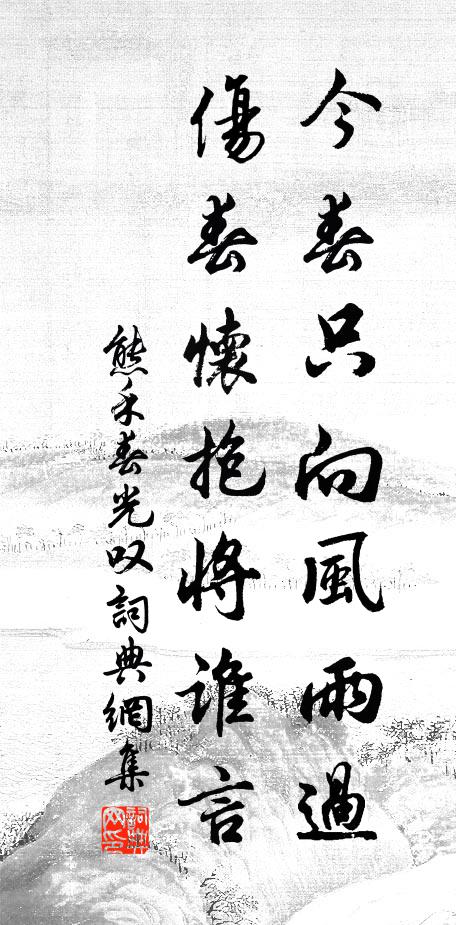 今春只向風雨過
傷春懷抱將誰言
熊禾春光叹詞典網集
詞典網印